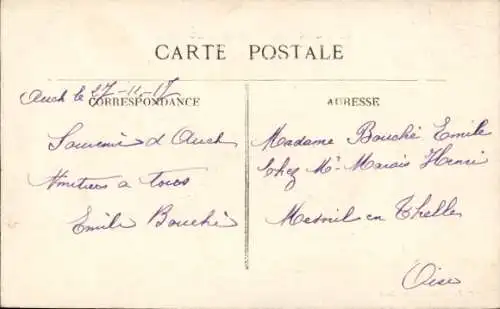 CARTE POSTALE
Auch le 27-11-17
CORRESPONDANCE
Souvenir d Auch
Amitiers a tous
Emile Bouché
ADRESSE
Madame Bouché Emile
Chez Mr Marais Henri
Mesnil en Thelle
Oise